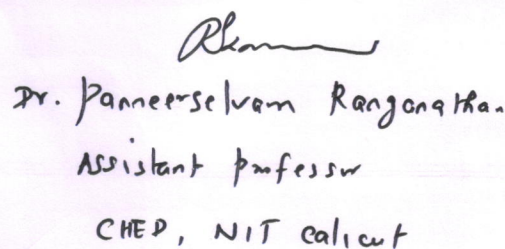 Dr. Panneerselvam Ranganathan
Assistant professor
CHED, NIT calicut